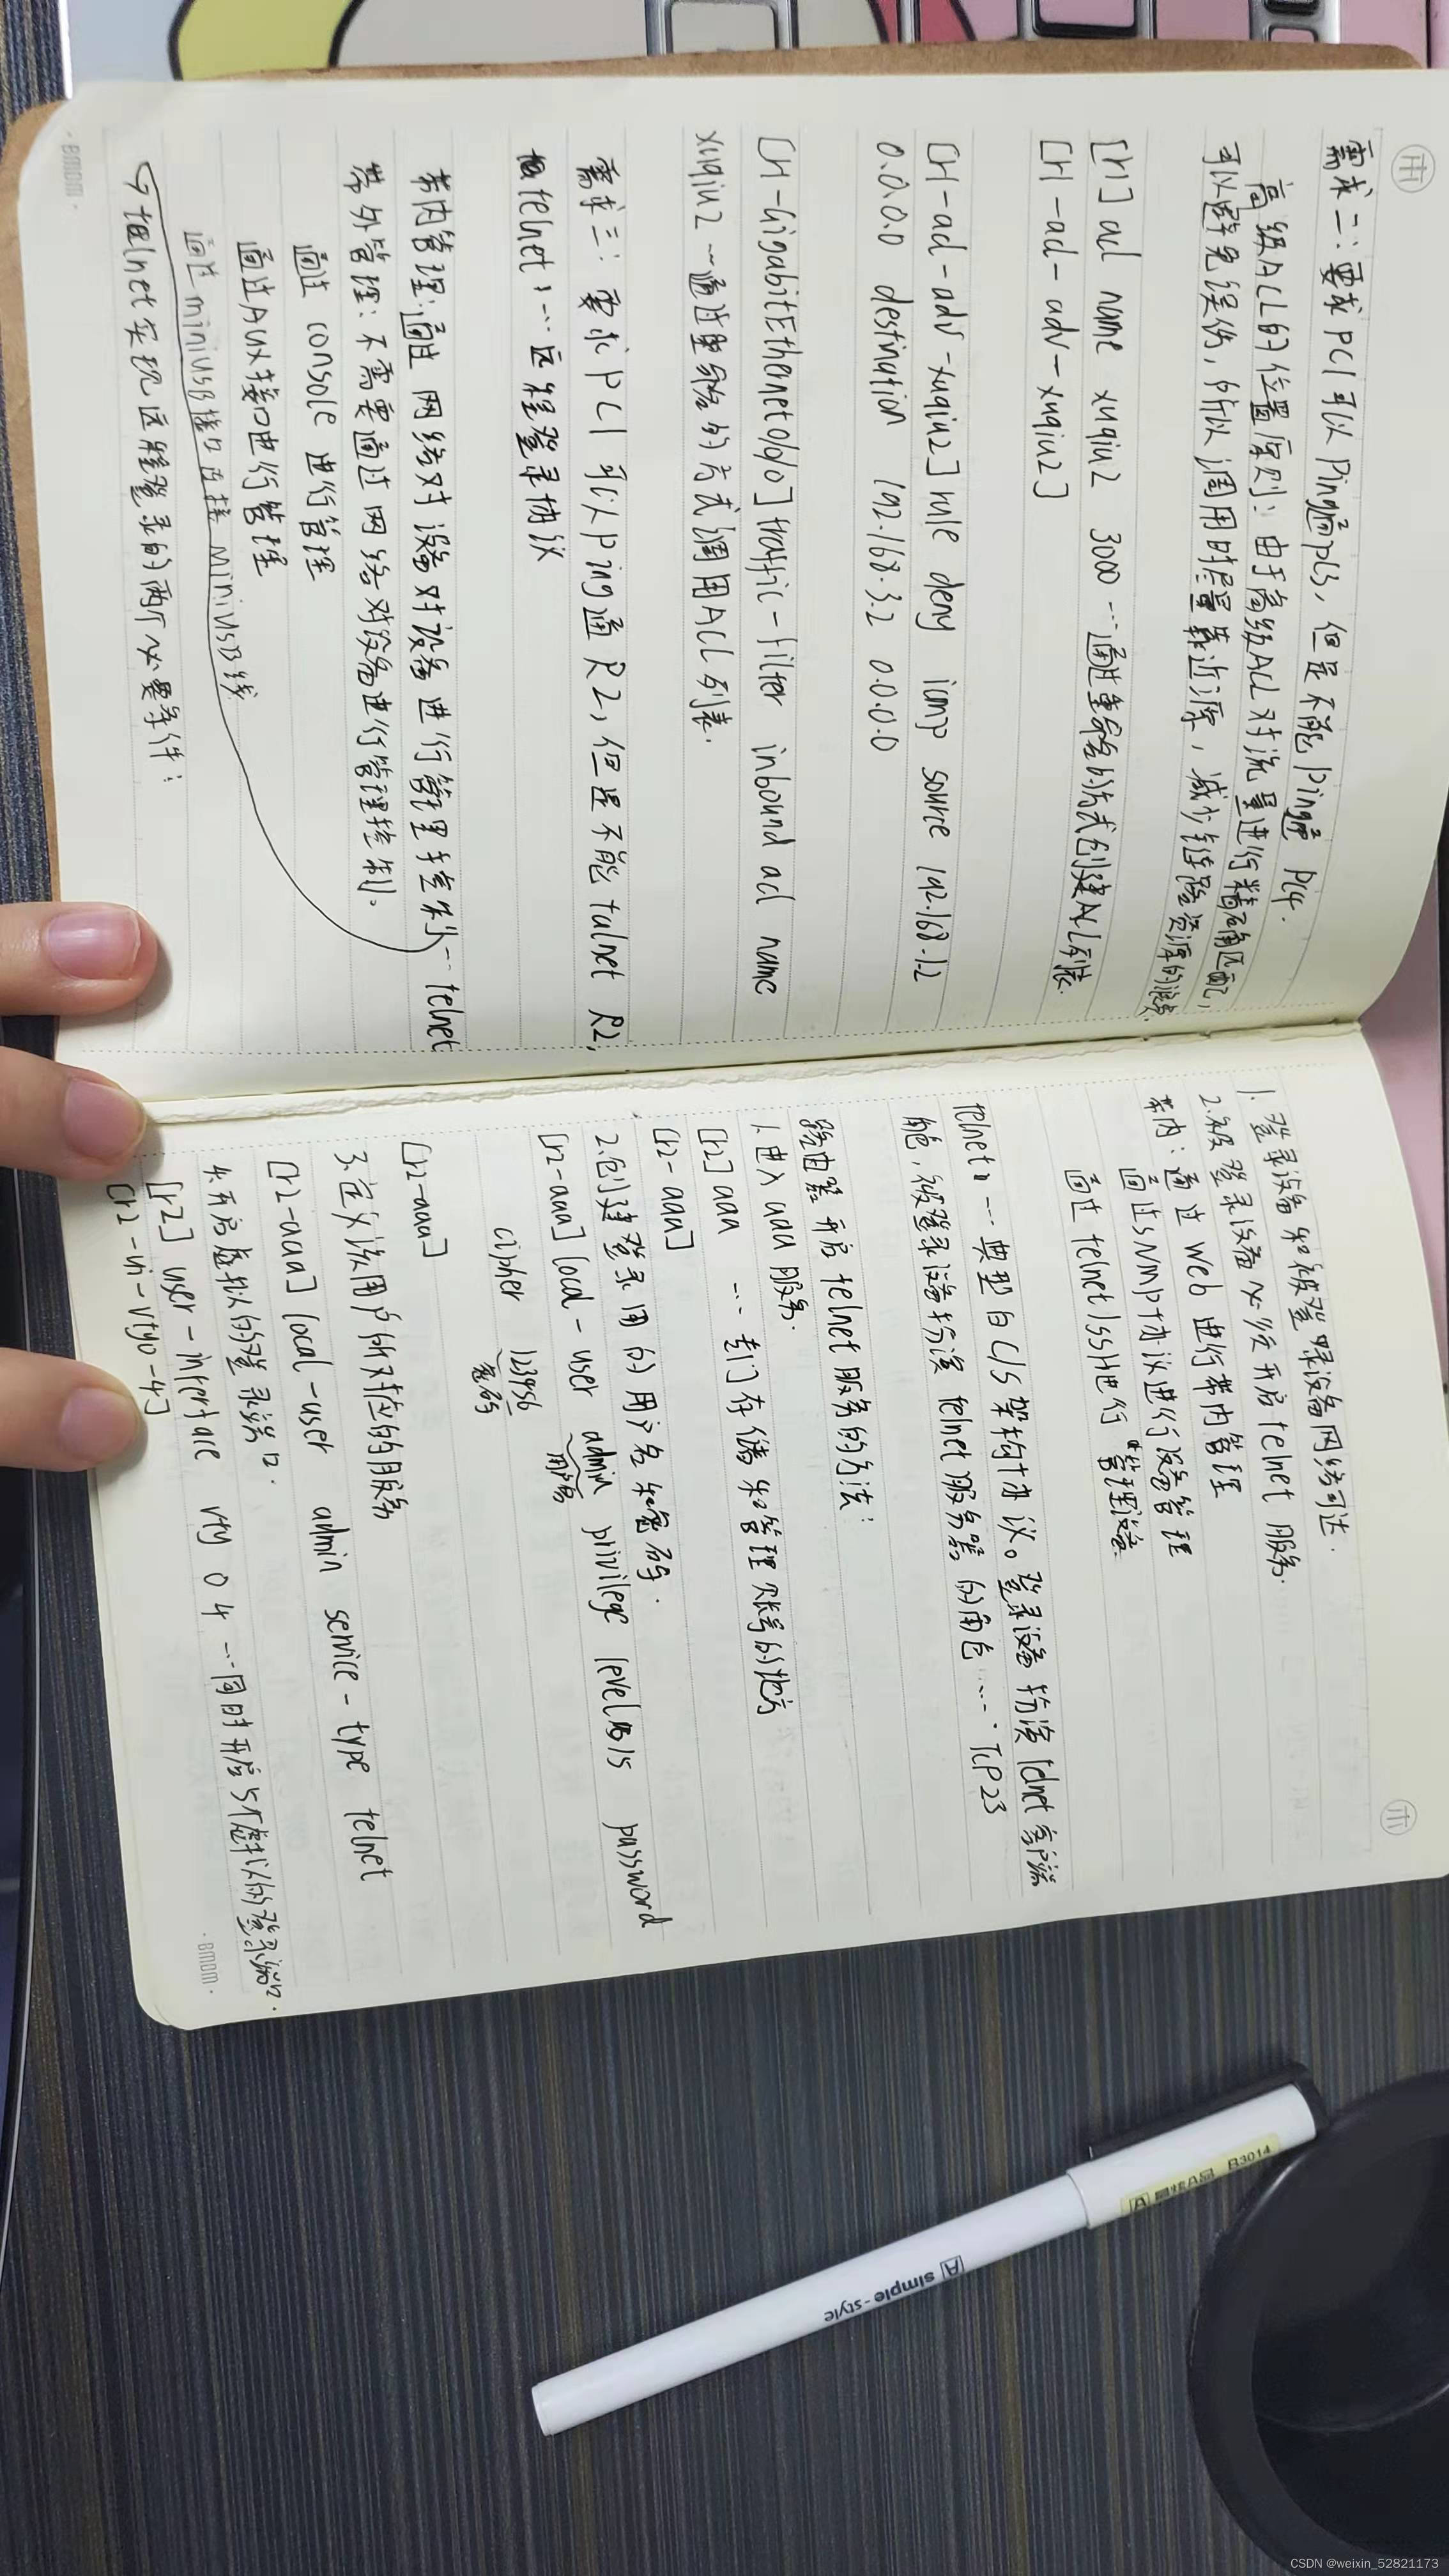 需求二：要求PC1可以Ping通PC3，但是不能Ping通 PC4.
高级ACL的位置原则：由于高级ACL对流量进行精确匹配，
可以避免误伤，所以调用时尽量靠近源，减少链路资源的浪费.
[r1] acl name xuqiu2 3000 …通过重命名的方式创建ACL列表.
[r1-acl-adv-xuqiu2]
[r1-acl-adv-xuqiu2] rule deny icmp source 192.168.1.2
0.0.0.0 destination 192.168.3.2 0.0.0.0
[r1-GigabitEthernet0/0/0] traffic-filter inbound acl name
xuqiu2 …通过重命名的方式调用ACL列表.
需求三：要求PC1可以Ping通R2，但是不能telnet R2，
telnet：…远程登录协议
带内管理：通过网络对设备对设备进行管理控制…telnet
带外管理：不需要通过网络对设备进行管理控制。
通过 console 进行管理
通过AUX接口进行管理
通过miniusB接口连接 miniusB线
telnet实现远程登录的两个必要条件：
1. 登录设备和被登录设备网络可达.
2.被登录设备必须开启telnet服务.
带内：通过Web进行带内管理
通过SNMP协议进行设备管理
通过telnet/ssH进行管理设备
telnet：…典型的C/S架构协议。登录设备扮演telnet客户端
角色，被登录设备扮演 telnet服务器的角色….TCP23
路由器开启telnet服务的方法：
1.进入aaa服务.
[r2] aaa …专门存储和管理账号的地方
[r2-aaa]
2.创建登录用的用户名和密码.
[r2-aaa] local-user admin privilege level 15 password
用户名
cipher 123456
密码
[r2-aaa]
3.定义该用户所对应的服务
[r2-aaa] local-user admin service-type telnet
4.开启虚拟的登录端口.
[r2] user-interface vty 0 4 …同时开启5个虚拟的登录端口.
[r2-ui-vty0-4]
BMBM
BMBM
simple-style
B3014
CSDN @weixin_52821173